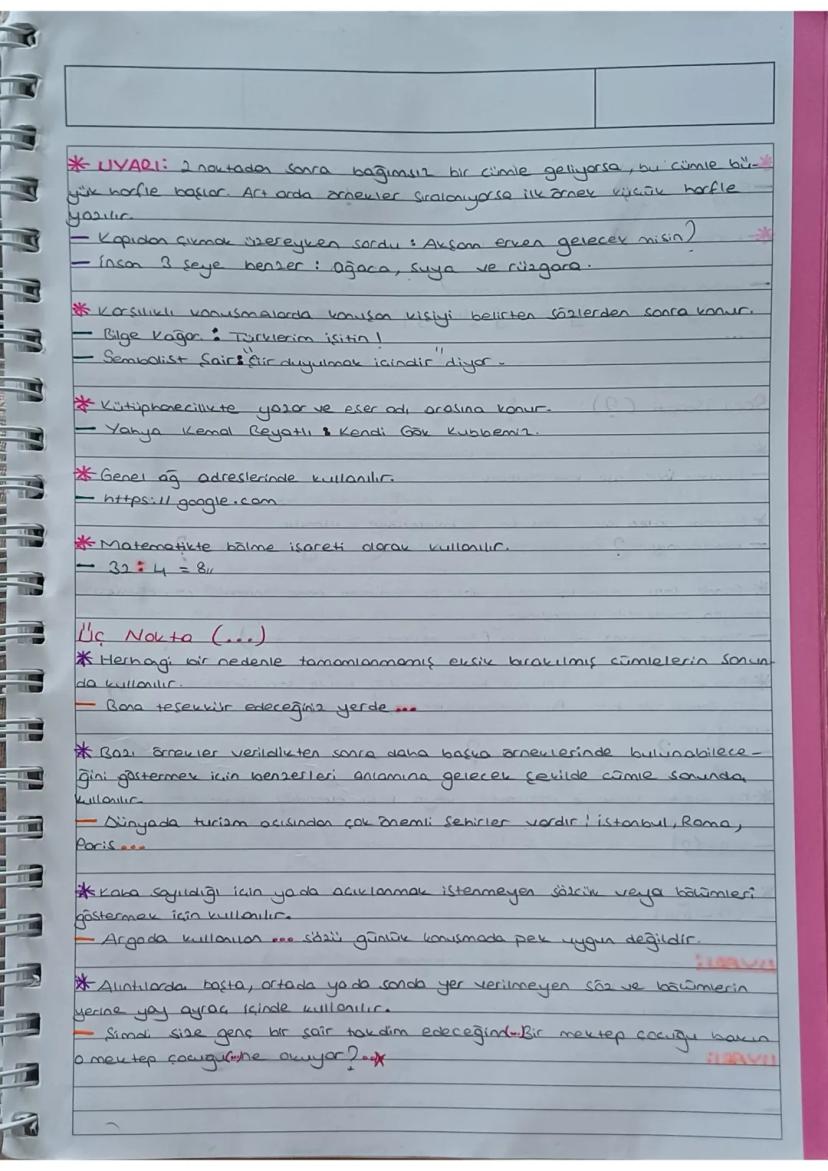 * UYARI: 2 noktadan sonra bağımsız bir cümle geliyorsa, bu cümle bü-
yük harfle başlar. Art arda örnekler sıralanıyorsa ilk örnek küçük harfle
yazılır.
- Kapıdan çıkmak üzereyken sordu : Akşam erken gelecek misin?
- İnsan 3 şeye benzer : ağaca, suya ve rüzgara.
* Karşılıklı konuşmalarda konuşan kişiyi belirten sözlerden sonra konur.
- Bilge Kağan : Türklerim işitin!
- Sembolist Şair: "Şiir duyulmak içindir" diyor.
* Kütüphanecilikte yazar ve eser adı arasına konur.
- Yahya Kemal Beyatlı : Kendi Gök Kubbemiz.
* Genel ağ adreslerinde kullanılır.
- https://google.com
* Matematikte bölme işareti olarak kullanılır.
- 32 : 4 = 8//
Üç Nokta (...)
* Herhagi bir nedenle tamamlanmamış eksik bırakılmış cümlelerin sonun-
da kullanılır.
- Bana teşekkür edeceğiniz yerde ...
* Bazı örnekler verildikten sonra daha başka örneklerinde bulunabilece-
ğini göstermek için benzerleri anlamına gelecek şekilde cümle sonunda
kullanılır.
- Dünyada turizm açısından çok önemli şehirler vardır: İstanbul, Roma,
Paris ...
* Kaba sayıldığı için yada açıklanmak istenmeyen sözcük veya bölümleri
göstermek için kullanılır.
- Argoda kullanılan ... sözü günlük konuşmada pek uygun değildir.
* Alıntılarda başta, ortada yada sonda yer verilmeyen söz ve bölümlerin
yerine yay ayraç içinde kullanılır.
- Şimdi size genç bir şair takdim edeceğim(...) Bir mektep çocuğu bakın
o mektep çocuğu(...)ne okuyor? ...